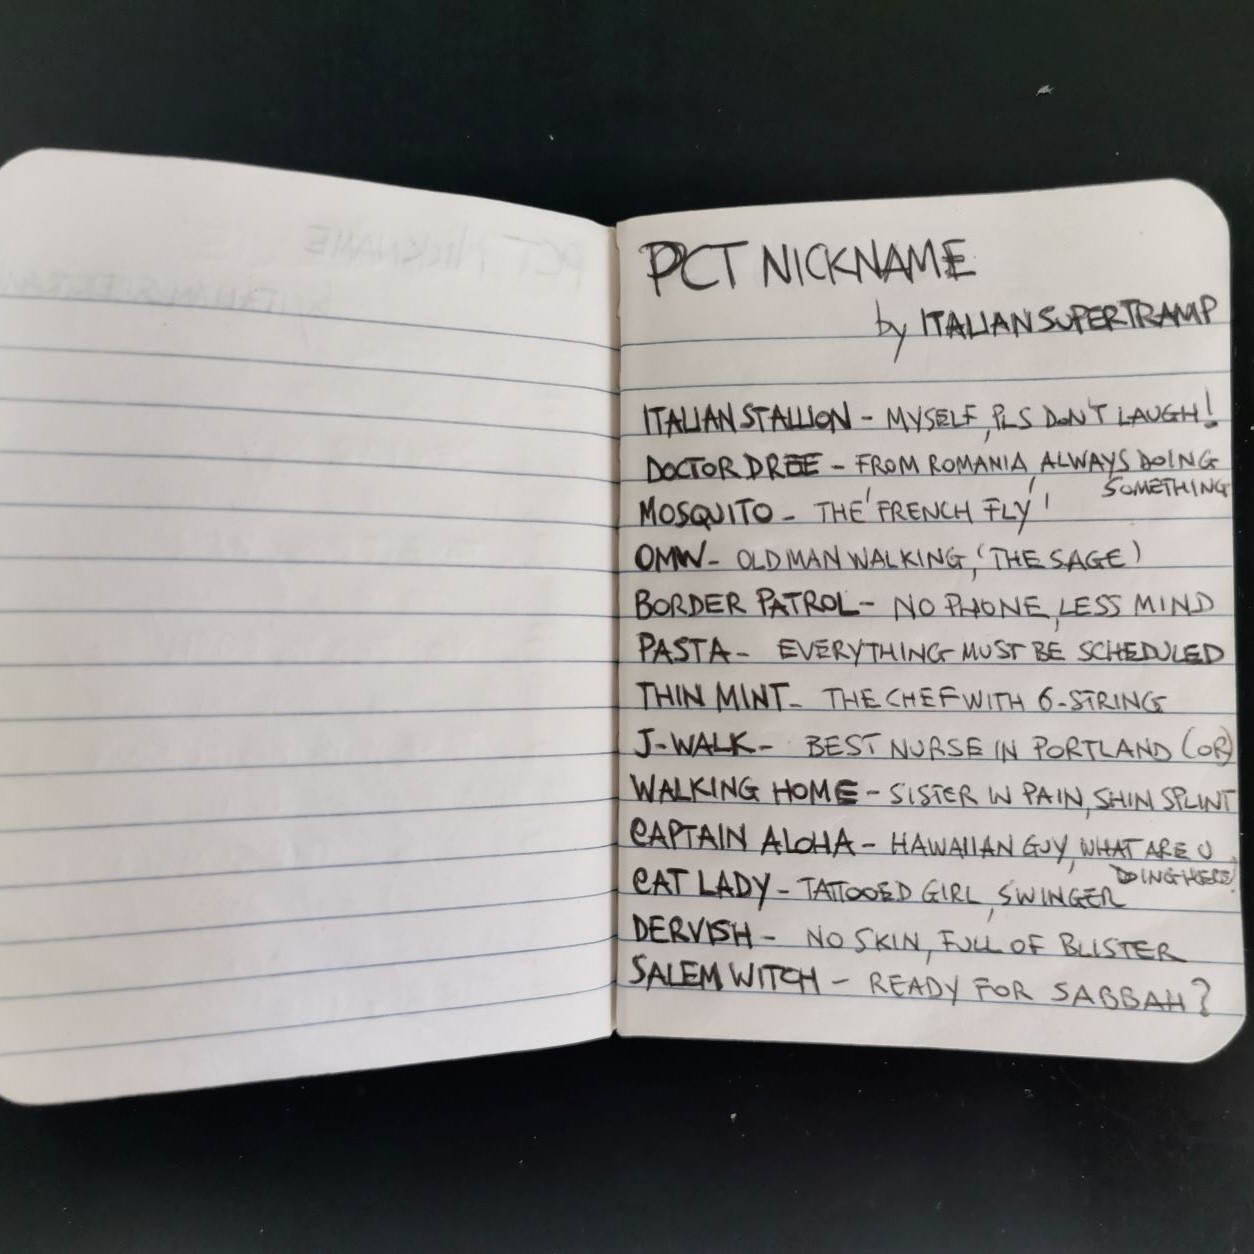 PCT NICKNAME
by ITALIAN SUPERTRAMP
ITALIAN STALLION - MYSELF, PLS DON'T LAUGH!
DOCTOR DREE - FROM ROMANIA, ALWAYS DOING
SOMETHING
MOSQUITO - THE 'FRENCH FLY'
OMW - OLD MAN WALKING, (THE SAGE)
BORDER PATROL - NO PHONE, LESS MIND
PASTA - EVERYTHING MUST BE SCHEDULED
THIN MINT - THE CHEF WITH 6-STRING
J-WALK - BEST NURSE IN PORTLAND (OR)
WALKING HOME - SISTER IN PAIN, SHIN SPLINT
CAPTAIN ALOHA - HAWAIIAN GUY, WHAT ARE U
DOING HERE?
CAT LADY - TATTOOED GIRL, SWINGER
DERVISH - NO SKIN, FULL OF BLISTER
SALEM WITCH - READY FOR SABBAH?